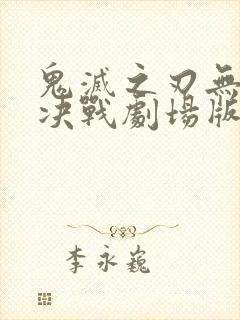 鬼滅之刃無
決戰劇場版
李永巍